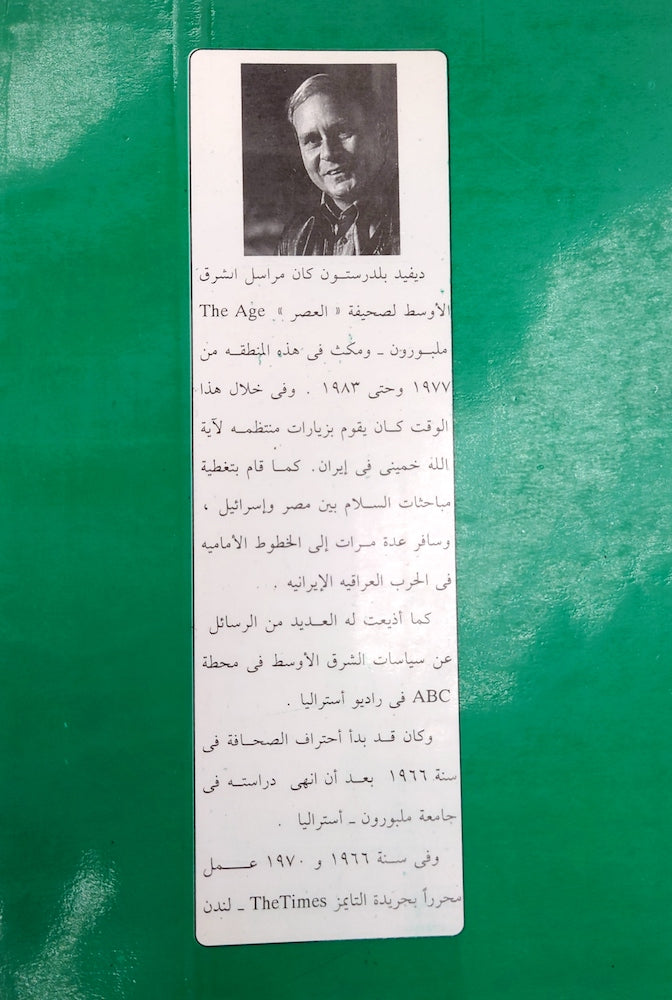 ديفيد بلدرستون كان مراسل الشرق
الأوسط لصحيفة « العصر » The Age
ملبورون ـ ومكث فى هذه المنطقه من
١٩٧٧ وحتى ١٩٨٣ . وفى خلال هذا
الوقت كان يقوم بزيارات منتظمه لآية
الله خمينى فى إيران. كما قام بتغطية
مباحثات السلام بين مصر وإسرائيل ،
وسافر عدة مرات إلى الخطوط الأماميه
فى الحرب العراقيه الإيرانيه .
كما أذيعت له العديد من الرسائل
عن سياسات الشرق الأوسط فى محطة
ABC فى راديو أستراليا .
وكان قد بدأ أحتراف الصحافة فى
سنة ١٩٦٦ بعد أن انهى دراسته فى
جامعة ملبورون ـ أستراليا .
وفى سنة ١٩٦٦ و ١٩٧٠ عمل
محرراً بجريدة التايمز TheTimes ـ لندن